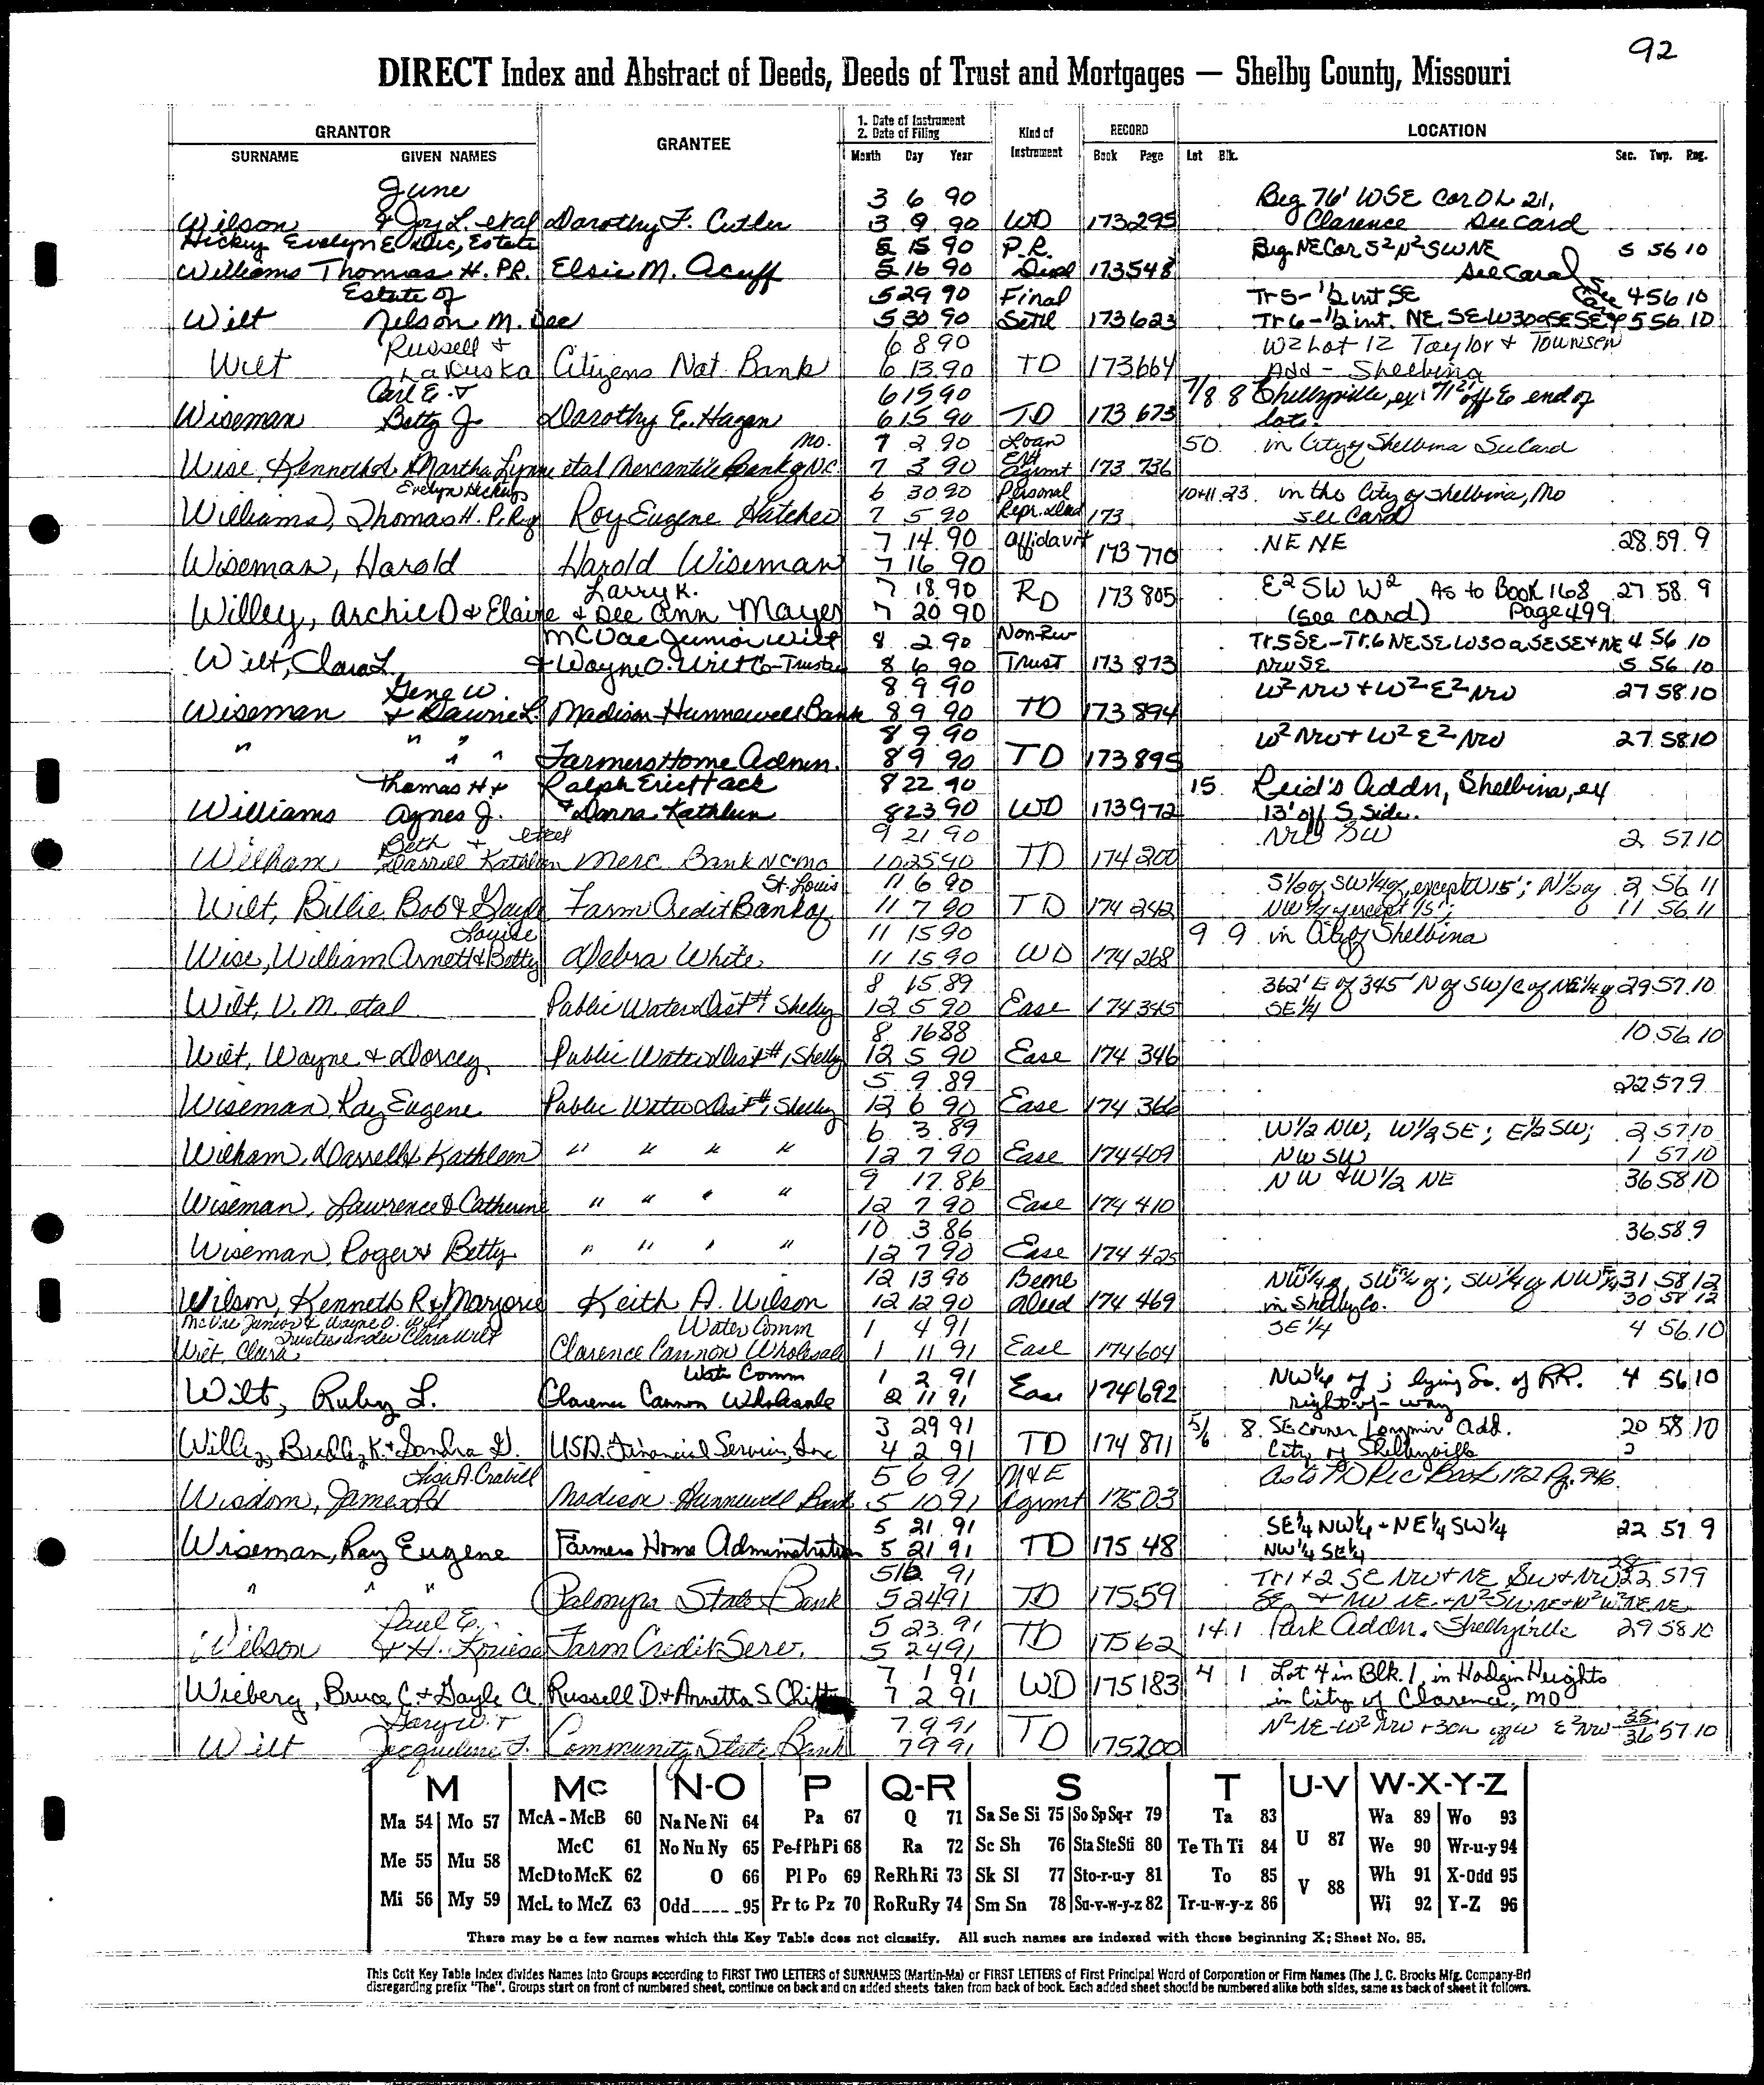 92
DIRECT Index and Abstract of Deeds, Deeds of Trust and Mortgages — Shelby County, Missouri
GRANTOR GRANTEE 1. Date of Instrument 2. Date of Filing Kind of Instrument RECORD LOCATION
SURNAME GIVEN NAMES Month Day Year Book Page Lot Blk. Sec. Twp. Rng.
June 3 6 90 Beg 76' WSE Cor OL 21,
Wilson & Joy L. etal Dorothy F. Cutler 3 9 90 WD 173 295 Clarence See Card
Hickey Evelyn E Dec, Estate 5 15 90 P.R. Beg NE Cor S2 N2 SWNE 5 56 10
Williams Thomas H. P.R. Elsie M. Acuff 5 16 90 Deed 173 548 See Card
Estate of 5 29 90 Final Tr 5 - 1/2 int SE See 4 56 10
Wilt Nelson M. Dec 5 30 90 Setll 173 623 Tr 6 - 1/2 int. NE SE W30a SESE 5 56 10
Russell & 6 8 90 W2 Lot 12 Taylor & Townsen
Wilt LaRuska Citizens Nat. Bank 6 13 90 TD 173 664 Add - Shelbina
Carl E. & 6 15 90 7/8 8 Shelbyville, ex off E end of
Wiseman Betty J Dorothy E. Hagen 6 15 90 TD 173 673 lots.
Mo. 7 2 90 Loan 50 in City of Shelbina See Card
Wise, Kenneth & Martha Lynn etal Mercantile Bank of N.C. 7 3 90 Agrmt 173 736
Evelyn Hickey 6 30 90 Personal 10+11 23 in the City of Shelbina, Mo
Williams, Thomas H. P. Rep Roy Eugene Hatcher 7 5 90 Repr. Deed 173 See Card
7 14 90 Affidavit NE NE 28 59 9
Wiseman, Harold Harold Wiseman 7 16 90 173 770
Larry K. 7 18 90 E2 SW W2 As to Book 168 27 58 9
Willey, Archie D & Elaine & Dee Ann Mayes 7 20 90 RD 173 805 (see card) Page 499
McVae Junior Wilt 8 2 90 Non-Rev Tr.5 SE - Tr.6 NESE W30a SESE + NE 4 56 10
Wilt, Clara L. & Wayne O. Wilt Co-Trustee 8 6 90 Trust 173 873 NWSE 5 56 10
Gene W. 8 9 90 W2 NW + W2 E2 NW 27 58 10
Wiseman & Dawne L. Madison-Hunnewell Bank 8 9 90 TD 173 894
" " " 8 9 90 W2 NW + W2 E2 NW 27 58 10
" " Farmers Home Admin. 8 9 90 TD 173 895
Thomas H & Ralph Eric Hack 8 22 90 15 Reid's Addn, Shelbina, ex
Williams Agnes J. & Donna Kathleen 8 23 90 WD 173 972 13' off S Side.
Beth & etal 9 21 90 NW SW 2 57 10
Wilham Darrell Kathleen Merc. Bank N.C. Mo 10 25 90 TD 174 200
St. Louis 11 6 90 S1/2 of SW1/4 of, except W15'; N1/2 of 2 56 11
Wilt, Billie Bob & Gayle Farm Credit Bank of 11 7 90 TD 174 242 NW 1/4 except 15'; 11 56 11
Louise 11 15 90 9 9 in City of Shelbina
Wise, William Arnett & Betty Debra White 11 15 90 WD 174 268
8 15 89 362' E of 345' N of SW/C of NE1/4 of 29 57 10
Wilt, V. M. etal Public Water Dist #1 Shelby 12 5 90 Ease 174 345 SE 1/4
8 16 88 10 56 10
Wilt, Wayne & Dorcey Public Water Dist #1, Shelby 12 5 90 Ease 174 346
5 9 89 22 57 9
Wiseman, Ray Eugene Public Water Dist #1 Shelby 12 6 90 Ease 174 366
6 3 89 W1/2 NW, W1/2 SE; E1/2 SW; 2 57 10
Wilham, Darrell & Kathleen " " " " 12 7 90 Ease 174 409 NW SW 1 57 10
9 17 86 NW & W1/2 NE 36 58 10
Wiseman, Lawrence & Catherine " " " " 12 7 90 Ease 174 410
10 3 86 36 58 9
Wiseman, Roger & Betty " " " " 12 7 90 Ease 174 425
12 13 90 Bene NW1/4 of, SW1/4 of; SW1/4 of NW1/4 31 58 12
Wilson, Kenneth R & Marjorie Keith A. Wilson 12 12 90 Deed 174 469 in Shelby Co. 30 58 12
McVae Junior & Wayne O. Wilt Water Comm 1 4 91 SE 1/4 4 56 10
Trustee under Clara Wilt
Wilt, Clara Clarence Cannon Wholesale 1 11 91 Ease 174 604
Wate Comm 1 2 91 NW1/4 of ; lying So. of RR. 4 56 10
Wilt, Ruby L. Clarence Cannon Wholesale 2 11 91 Ease 174 692 right-of-way
3 29 91 5/6 8 SE corner Add. 20 58 10
Willey, Bradley K. & Sandra G. USA Financial Services, Inc 4 2 91 TD 174 871 City of Shelbyville
Lisa A. Crabill 5 6 91 M&E As to TD Rec Book 172 Pg. 946
Wisdom, James Madison Hunnewell Bank 5 10 91 Agrmt 175 03
5 21 91 SE1/4 NW1/4 + NE1/4 SW1/4 22 57 9
Wiseman, Ray Eugene Farmers Home Administration 5 21 91 TD 175 48 NW1/4 SE1/4
" " " 5 16 91 Tr 1 + 2 SE NW + NE SW + NW 22 57 9
Palmyra State Bank 5 24 91 TD 175 59 SE, + NW NE + N2 SWNE + N2 W2 NE NE
Paul E. 5 23 91 14 1 Park Addn. Shelbyville 29 58 10
Wilson & H. Louise Farm Credit Serv. 5 24 91 TD 175 62
7 1 91 4 1 Lot 4 in Blk. 1, in Hodgin Heights
Wieberg, Bruce C & Gayle A. Russell D & Annetta S 7 2 91 WD 175 183 in City of Clarence, MO
Gary W. & 7 9 91 N2 NE - W2 NW + 30a off W E2 NW 35
Wilt Jacqueline J. Community State Bank 7 9 91 TD 175 200 36 57 10
M Mc N-O P Q-R S T U-V W-X-Y-Z
Ma 54 Mo 57 McA - McB 60 Na Ne Ni 64 Pa 67 Q 71 Sa Se Si 75 So Sp Sq-r 79 Ta 83 U 87 Wa 89 Wo 93
Me 55 Mu 58 McC 61 No Nu Ny 65 Pe-f Ph Pi 68 Ra 72 Sc Sh 76 Sta Ste Sti 80 Te Th Ti 84 We 90 Wr-u-y 94
McD to McK 62 O 66 Pl Po 69 Re Rh Ri 73 Sk Sl 77 Sto-r-u-y 81 To 85 V 88 Wh 91 X-Odd 95
Mi 56 My 59 McL to McZ 63 Odd-----95 Pr to Pz 70 Ro Ru Ry 74 Sm Sn 78 Su-v-w-y-z 82 Tr-u-w-y-z 86 Wi 92 Y-Z 96
There may be a few names which this Key Table does not classify. All such names are indexed with those beginning X; Sheet No. 95.
This Cott Key Table Index divides Names into Groups according to FIRST TWO LETTERS of SURNAMES (Martin-Ma) or FIRST LETTERS of First Principal Word of Corporation or Firm Names (The J. C. Brooks Mfg. Company-Br)
disregarding prefix "The". Groups start on front of numbered sheet, continue on back and on added sheets taken from back of book. Each added sheet should be numbered alike both sides, same as back of sheet it follows.